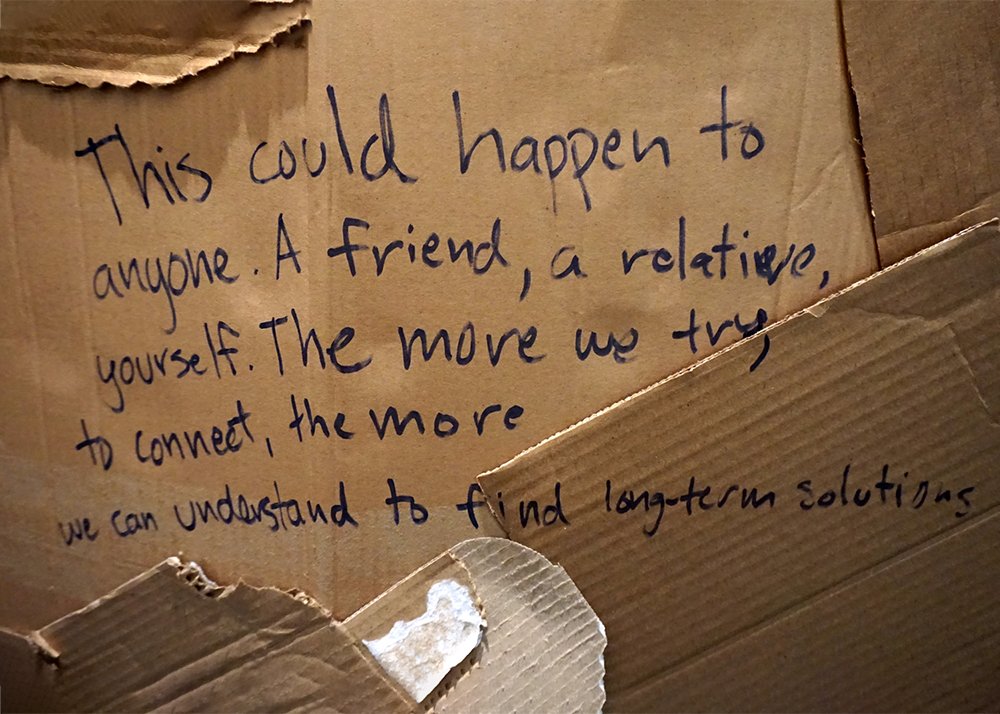 This could happen to
anyone. A friend, a relative,
yourself. The more we try,
to connect, the more
we can understand to find long-term solutions